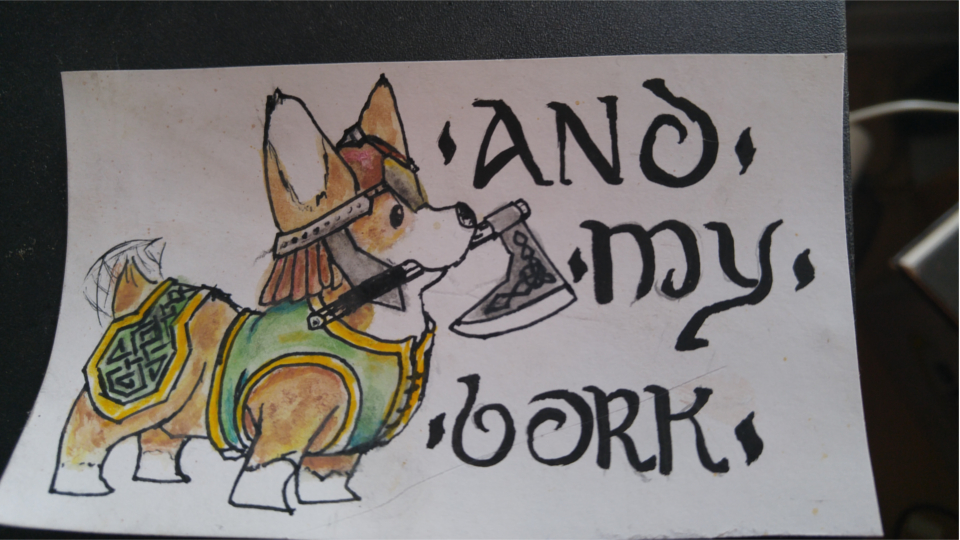 AND
MY
bORK